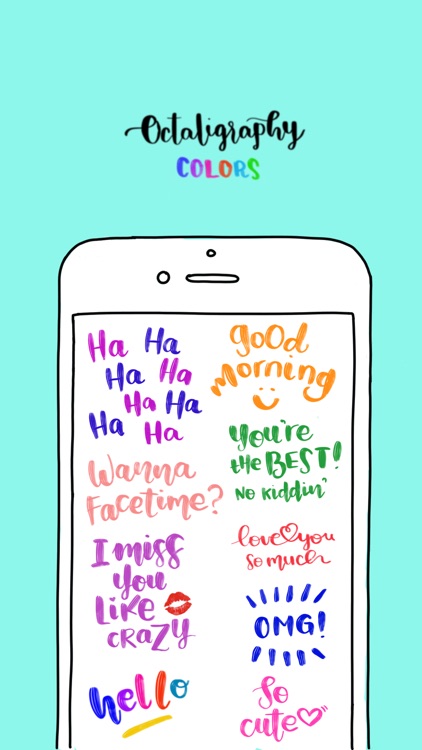 Octaligraphy
COLORS
Ha Ha
Ha Ha
Ha Ha
Ha Ha
good
morning
Wanna
Facetime?
You're
the BEST!
No Kiddin'
I miss
you
Like
crazy
love you
so much
OMG!
hello
So
cute